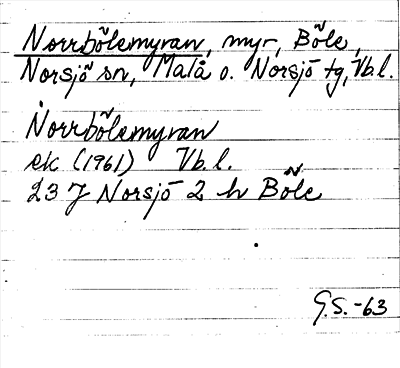 Norrbölemyran, myr, Böle,
Norsjö sn, Malå o. Norsjö tg, Vb.l.
Norrbölemyran
ek (1961) Vb.l.
23 J Norsjö 2 h Böle
G.S. -63